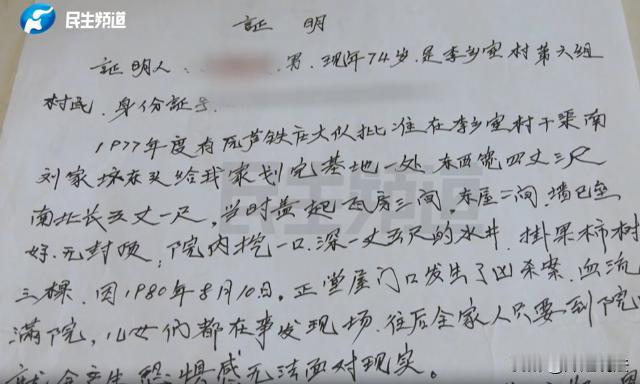 民生频道
証 明
証明人： 男．现年74岁．是李乡宦村第六组
村民．身份証号
1977年度有瓦芦铁庄大队批准在李乡宦村干渠南
刘家坟东头给我家划宅基地一处 东西宽四丈三尺
南北长五丈一尺，当时盖起瓦房三间，东屋二间．墙已垒
好．无封顶；院内挖一口．深一丈五尺的水井．掛果柿树
三棵．因1980年8月10日，正堂屋门口发生了凶杀案．血流
满院，儿女们都在事发现场．往后全家人只要一到院
就会产生 惧感无法面对现实。
民生频道